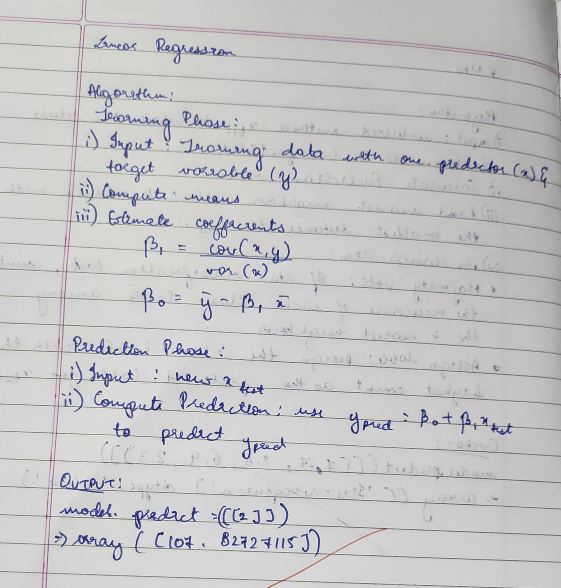 Linear Regression
Algorithm:
Learning Phase:
i) Input : Training data with one predictor (x) &
target variable (y)
ii) Compute means
iii) Estimate coefficients
β₁ = cov(x,y)
var(x)
β₀ = ȳ - β₁ x̄
Prediction Phase:
i) Input : new x test
ii) Compute Prediction: use ypred = β₀ + β₁ xtest
to predict ypred
OUTPUT:
model. predict =([[2]])
⇒ array ( [107. 82727115])